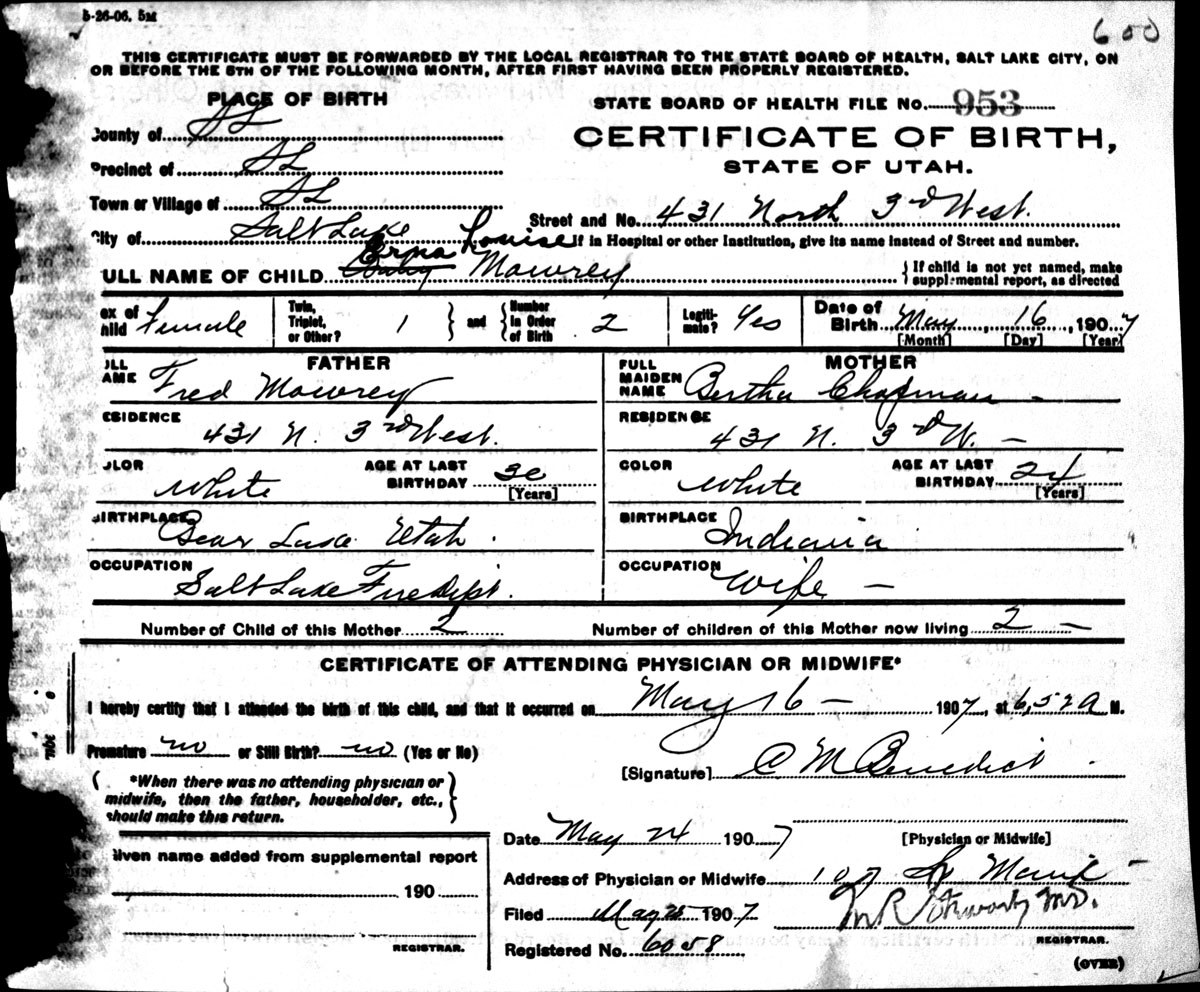 5-26-06. 5M
600
THIS CERTIFICATE MUST BE FORWARDED BY THE LOCAL REGISTRAR TO THE STATE BOARD OF HEALTH, SALT LAKE CITY, ON
OR BEFORE THE 5TH OF THE FOLLOWING MONTH, AFTER FIRST HAVING BEEN PROPERLY REGISTERED.
PLACE OF BIRTH
STATE BOARD OF HEALTH FILE No. 953
County of SL
CERTIFICATE OF BIRTH,
Precinct of SL
STATE OF UTAH.
Town or Village of SL
Street and No. 431 North 3rd West.
City of Salt Lake
If in Hospital or other Institution, give its name instead of Street and number.
Erma Louise
ULL NAME OF CHILD Baby Mowrey
If child is not yet named, make
supplemental report, as directed
ex of hild Female
Twin, Triplet, or Other? 1 and Number in Order of Birth 2
Legitimate? Yes
Date of Birth May 16, 1907
[Month] [Day] [Year]
FATHER
MOTHER
ULL AME Fred Mowrey
FULL MAIDEN NAME Bertha Chapman -
ESIDENCE 431 N. 3rd West.
RESIDENCE 431 N. 3rd W. -
OLOR White
AGE AT LAST BIRTHDAY 30 [Years]
COLOR White
AGE AT LAST BIRTHDAY 24 [Years]
BIRTHPLACE Bear Lake Utah.
BIRTHPLACE Indiana
OCCUPATION Salt Lake Fire Dept.
OCCUPATION Wife -
Number of Child of this Mother 2
Number of children of this Mother now living 2 -
CERTIFICATE OF ATTENDING PHYSICIAN OR MIDWIFE*
I hereby certify that I attended the birth of this child, and that it occurred on May 16 - 1907, at 6,52 A M.
Premature no or Still Birth? no (Yes or No)
[Signature] C M Benedict
(*When there was no attending physician or
midwife, then the father, householder, etc.,
should make this return.
Date May 24 1907
[Physician or Midwife]
Given name added from supplemental report
Address of Physician or Midwife 107 So Main -
190
Filed May 25 1907
M.D.
REGISTRAR.
REGISTRAR.
Registered No. 6058
(OVER)